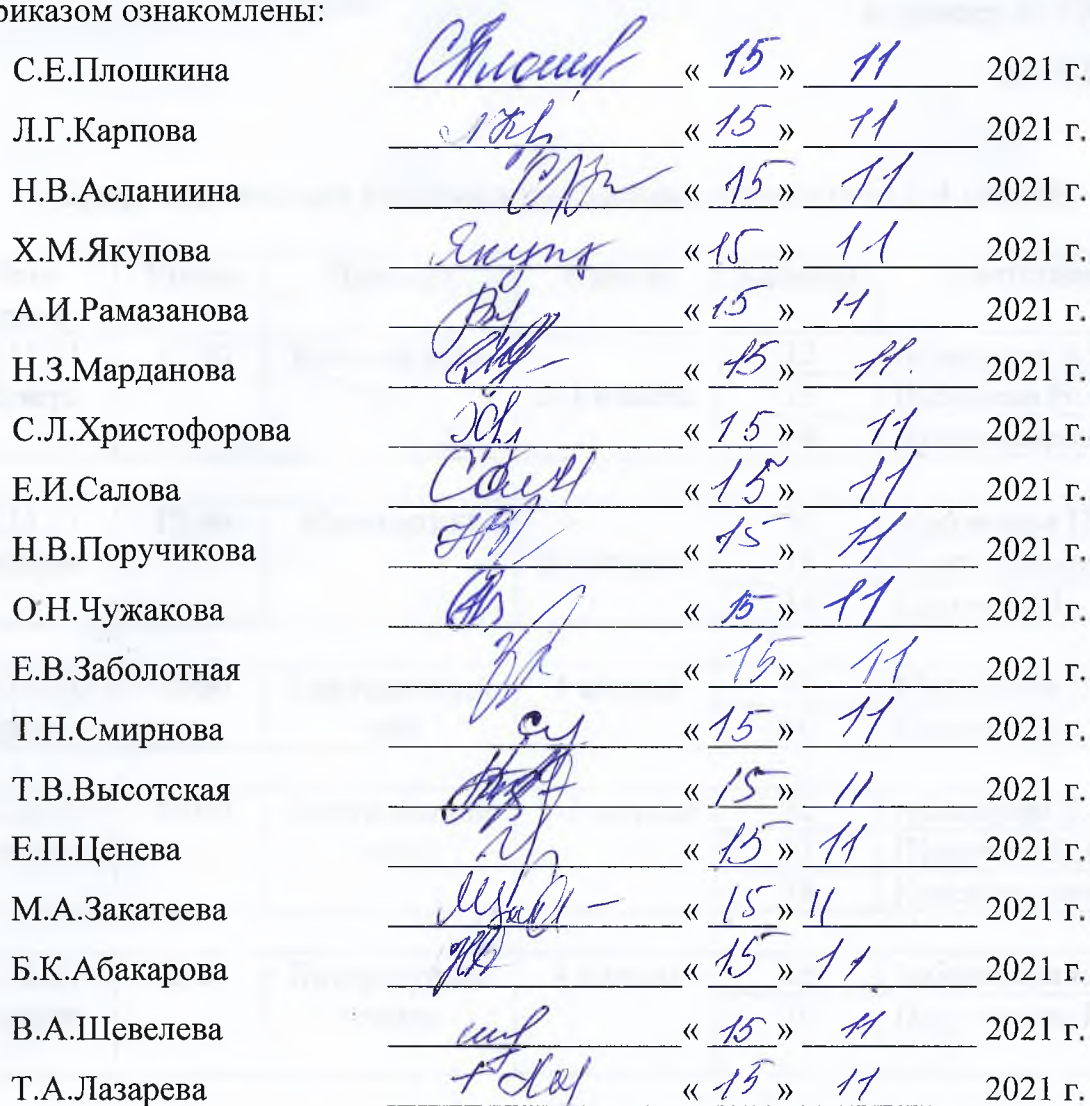 риказом ознакомлены:
С.Е.Плошкина « 15 » 11 2021 г.
Л.Г.Карпова « 15 » 11 2021 г.
Н.В.Асланиина « 15 » 11 2021г.
Х.М.Якупова « 15 » 11 2021 г.
А.И.Рамазанова « 15 » 11 2021 г.
Н.З.Марданова « 15 » 11. 2021 г.
С.Л.Христофорова « 15 » 11 2021 г.
Е.И.Салова « 15 » 11 2021 г.
Н.В.Поручикова « 15 » 11 2021 г.
О.Н.Чужакова « 15 » 11 2021 г.
Е.В.Заболотная « 15 » 11 2021 г.
Т.Н.Смирнова « 15 » 11 2021 г.
Т.В.Высотская « 15 » 11 2021 г.
Е.П.Ценева « 15 » 11 2021 г.
М.А.Закатеева « 15 » 11 2021 г.
Б.К.Абакарова « 15 » 11 2021г.
В.А.Шевелева « 15 » 11 2021 г.
Т.А.Лазарева « 15 » 11 2021 г.